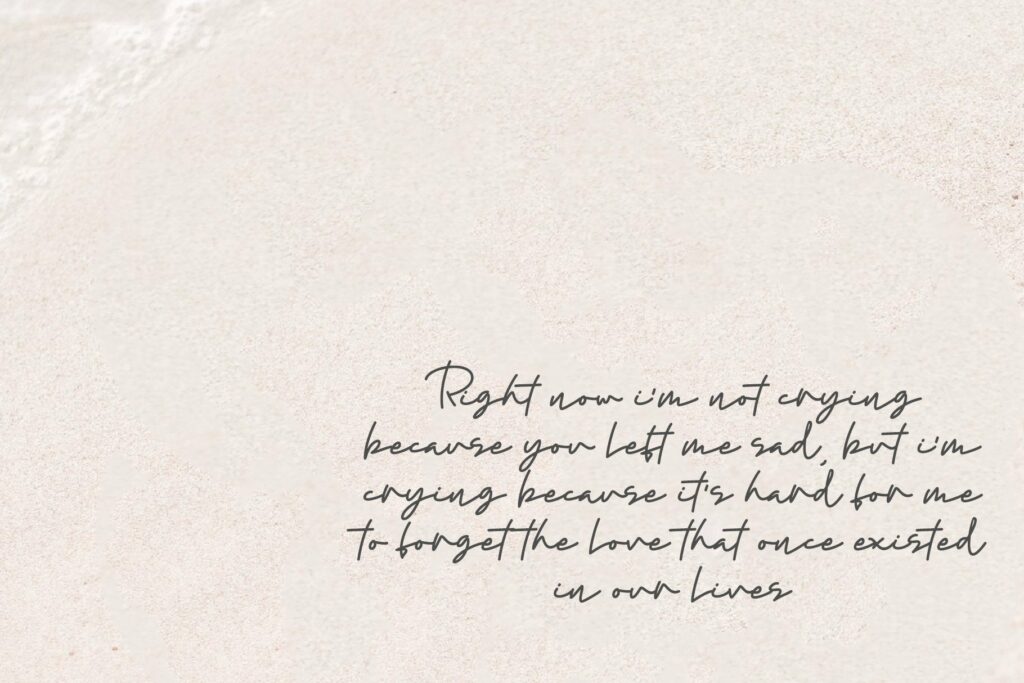 Right now i'm not crying
because you left me sad, but i'm
crying because it's hard for me
to forget the love that once existed
in our lives